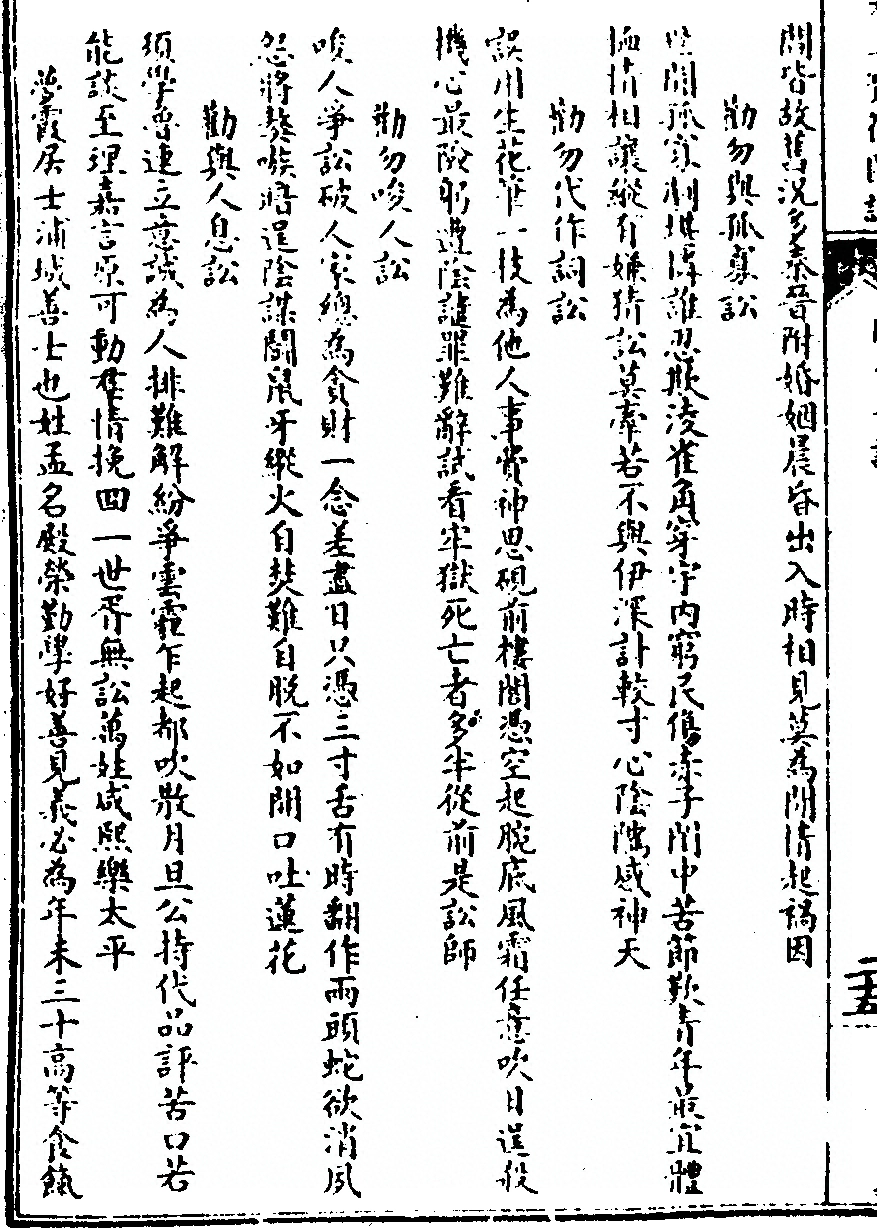 間皆故舊況多秦晉附婚姻晨昏出入時相見莫為閒情起禍因
勸勿與孤寡訟
世間孤寡剧堪憐誰忍欺淩雀角穿宇內窮民傷赤子閨中苦節歎青年最宜體
恤情相讓縱有嫌猜訟莫牽若不與伊深計較寸心陰隲感神天
勸勿代作詞訟
誤用生花筆一枝為他人事費神思硯前樓閣憑空起腕底風霜任意吹日逞殺
機心最險躬遭陰譴罪難辭試看牢獄死亡者多半從前是訟師
勸勿唆人訟
唆人爭訟破人家總為貪財一念差盡日只憑三寸舌有時翻作兩頭蛇欲消夙
怨將獒嗾暗逞陰謀鬪鼠牙縱火自焚難自脫不如開口吐蓮花
勸與人息訟
須學魯連立意誠為人排難解紛爭雲霾乍起都吹散月旦公持代品評苦口若
能談至理嘉言原可動羣情挽回一世胥無訟萬姓咸熙樂太平
夢霞居士浦城善士也姓孟名殿榮勤學好善見義必為年未三十高等食餼
二五